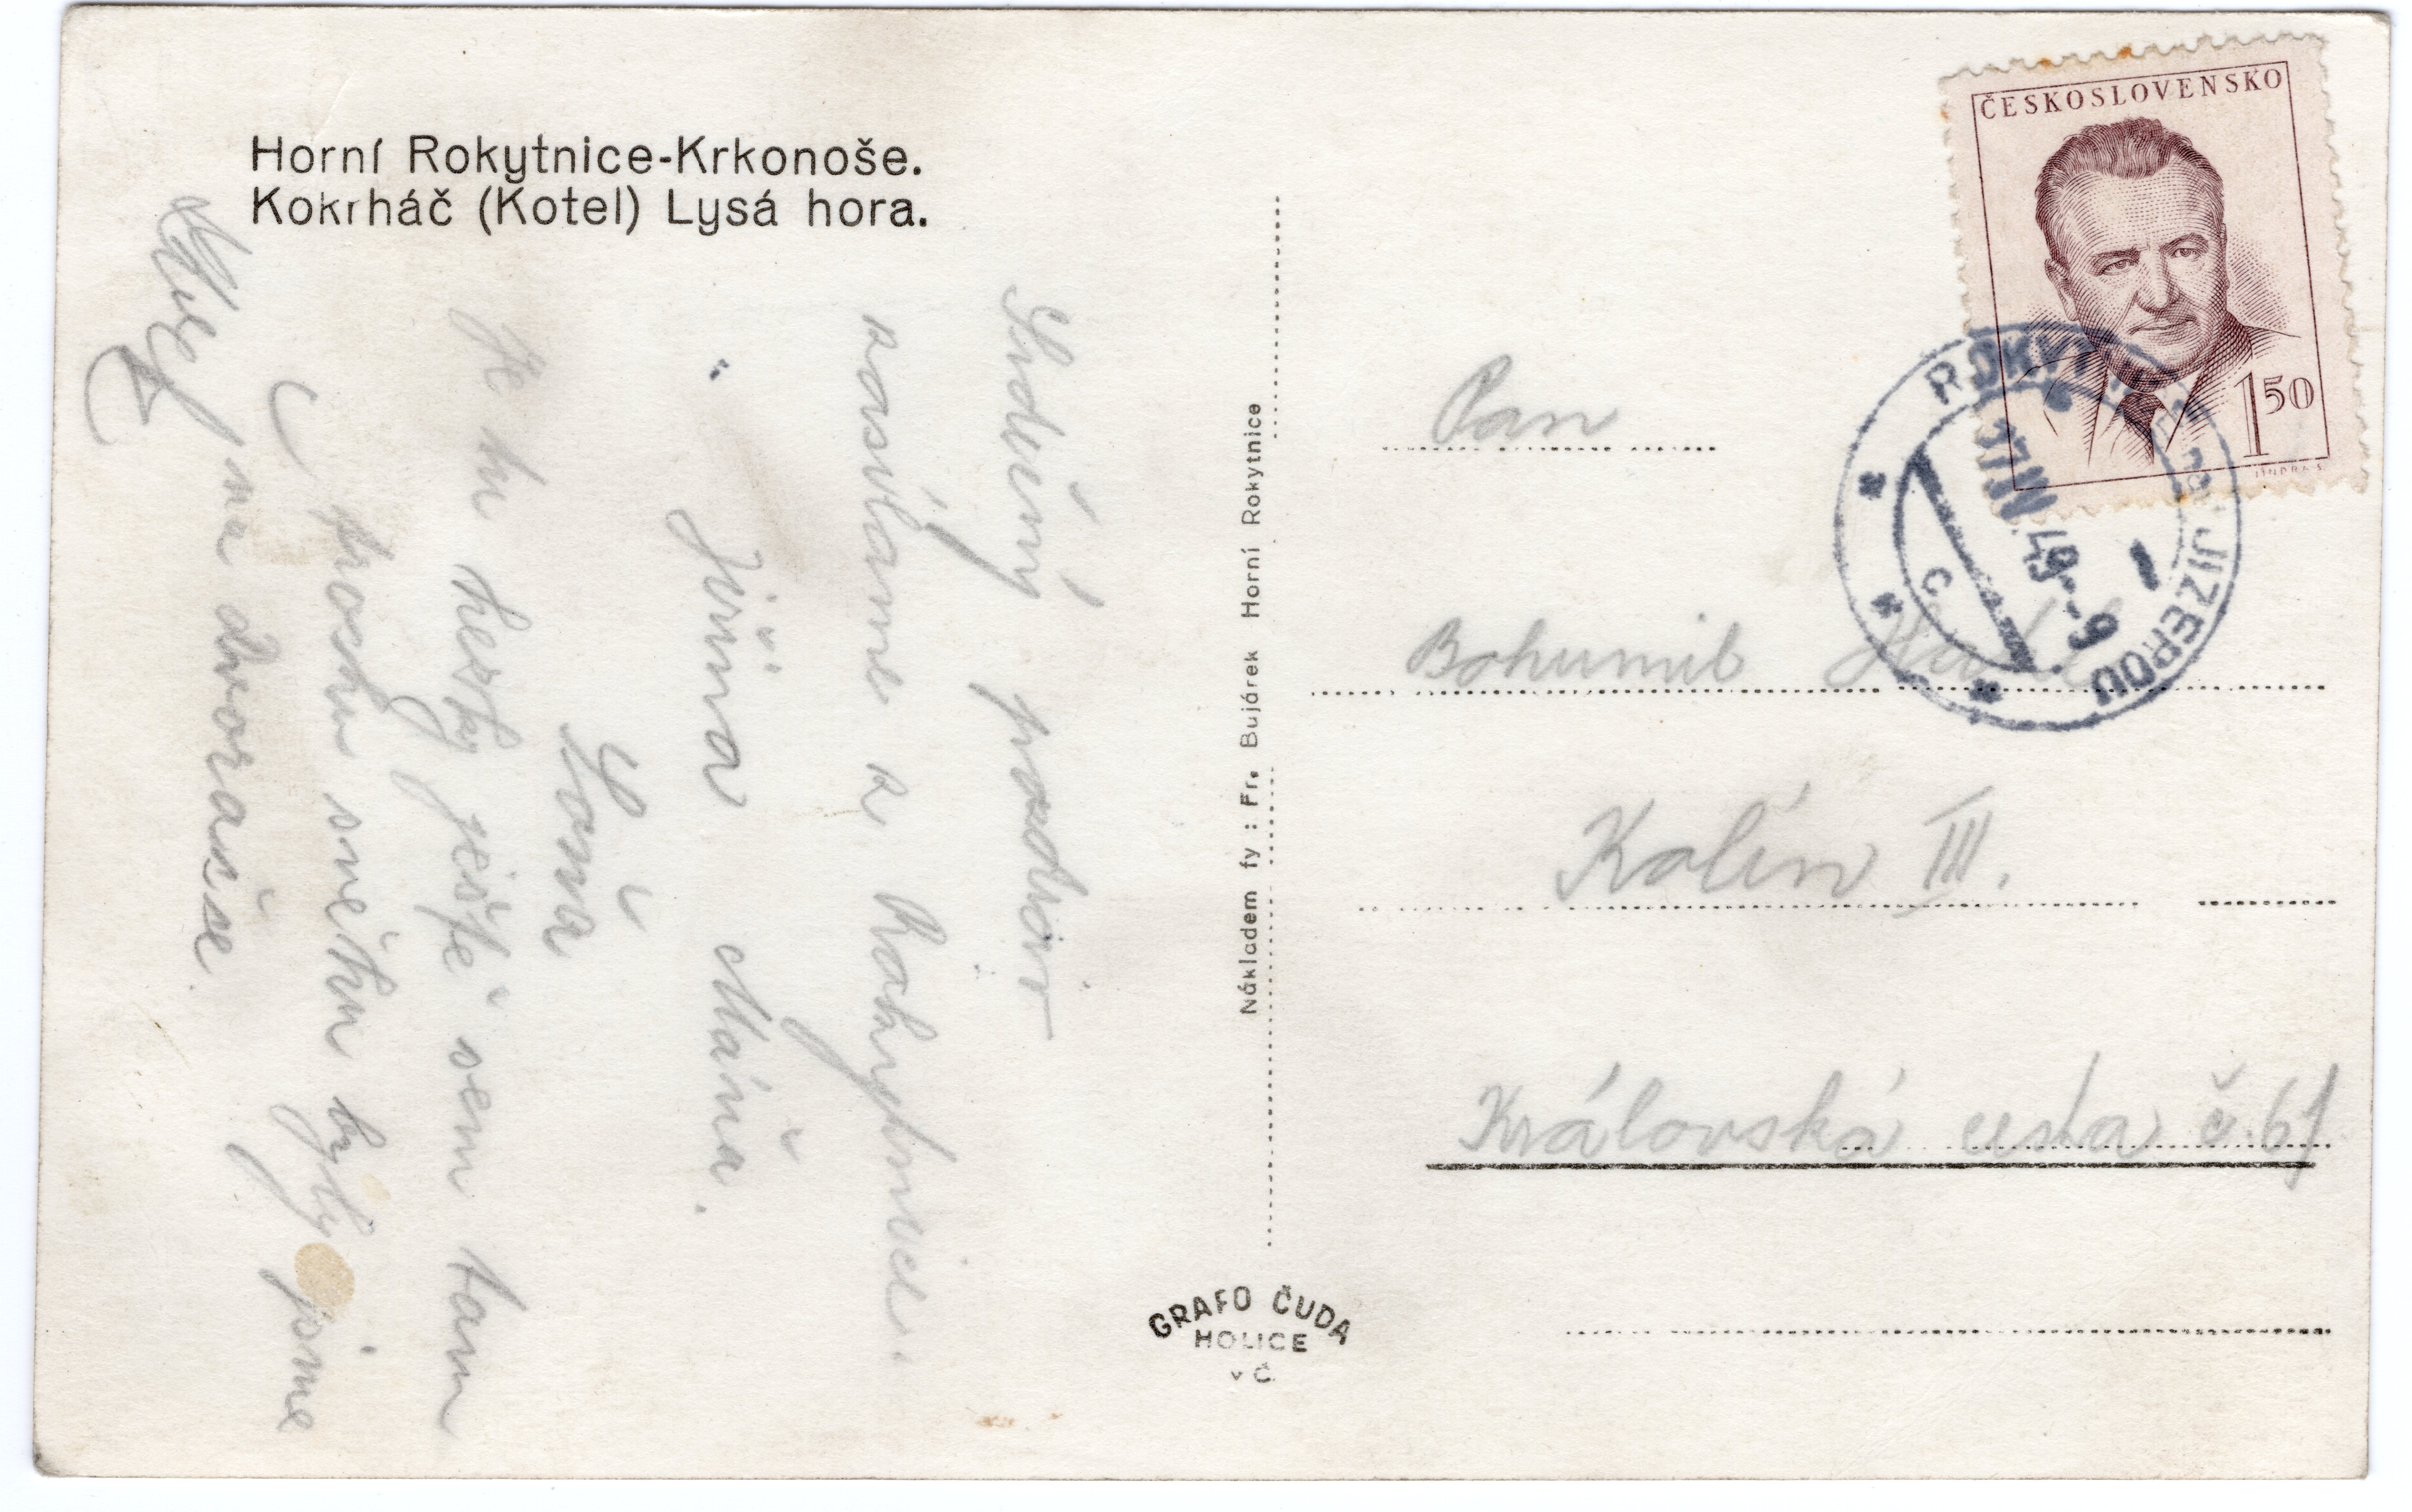 Horní Rokytnice-Krkonoše.
Kokrháč (Kotel) Lysá hora.
Srdečný pozdrav
zasíláme z Rokytnice.
Jiřina Máňa.
Soňa
Je tu hezky ještě sem tam
trochu sněhu byly jsme
na Dvoračce.
Nákladem fy : Fr. Bujárek Horní Rokytnice
GRAFO ČUDA
HOLICE
v Č.
ČESKOSLOVENSKO
1 50
JINDRA S.
ROKYTNICE NAD JIZEROU
49-9
1
c
Pan
Bohumil
Kolín III.
Královská cesta č. 61